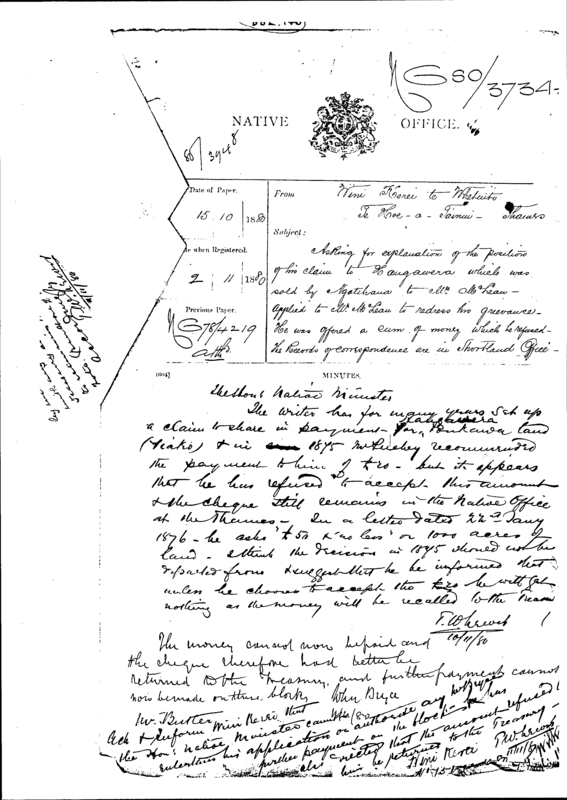 NG 80/3734
NATIVE OFFICE.
80/3948
Date of Paper.
15 10 1880
When Registered.
2 11 1880
Previous Paper.
NG 78/4219
From Wini Kerei to Whetuiti
Te Hoe-a-Tainui - Thames
Subject:
Asking for explanation of the position
of his claim to Hangawera which was
sold by Ngatihaua to Mr McLean -
applied to Mr McLean to redress his grievance -
He was offered a sum of money which he refused -
The Records of correspondence are in Shortland Office -
MINUTES.
The Hon. Native Minister
The writer has for many years set up
a claim to share in payment for Hangawera land
(Piako) & in 1875 Mr Puckey recommended
the payment to him of £20 - but it appears
that he has refused to accept this amount
& the cheque still remains in the Native Office
at the Thames - In a letter dated 22nd Jany
1876 - he asks £50 & "no less" or 1000 acres of
land - I think the decision in 1875 should not be
departed from & suggest that he be informed that
unless he chooses to accept the £20 he will get
nothing as the money will be recalled to the Treasury
T.W. Lewis
10/11/80
The money cannot now be paid and
the cheque therefore had better be
returned to the Treasury, and further payments cannot
now be made on these blocks
Mr. Butler
Ack & inform Wini Kerei that
the Hon. Native Minister cannot
entertain his application or authorize any
further payment on the block - & has
also directed that the amount refused by
him be returned to the Treasury -
Wini Kerei
T.W. Lewis